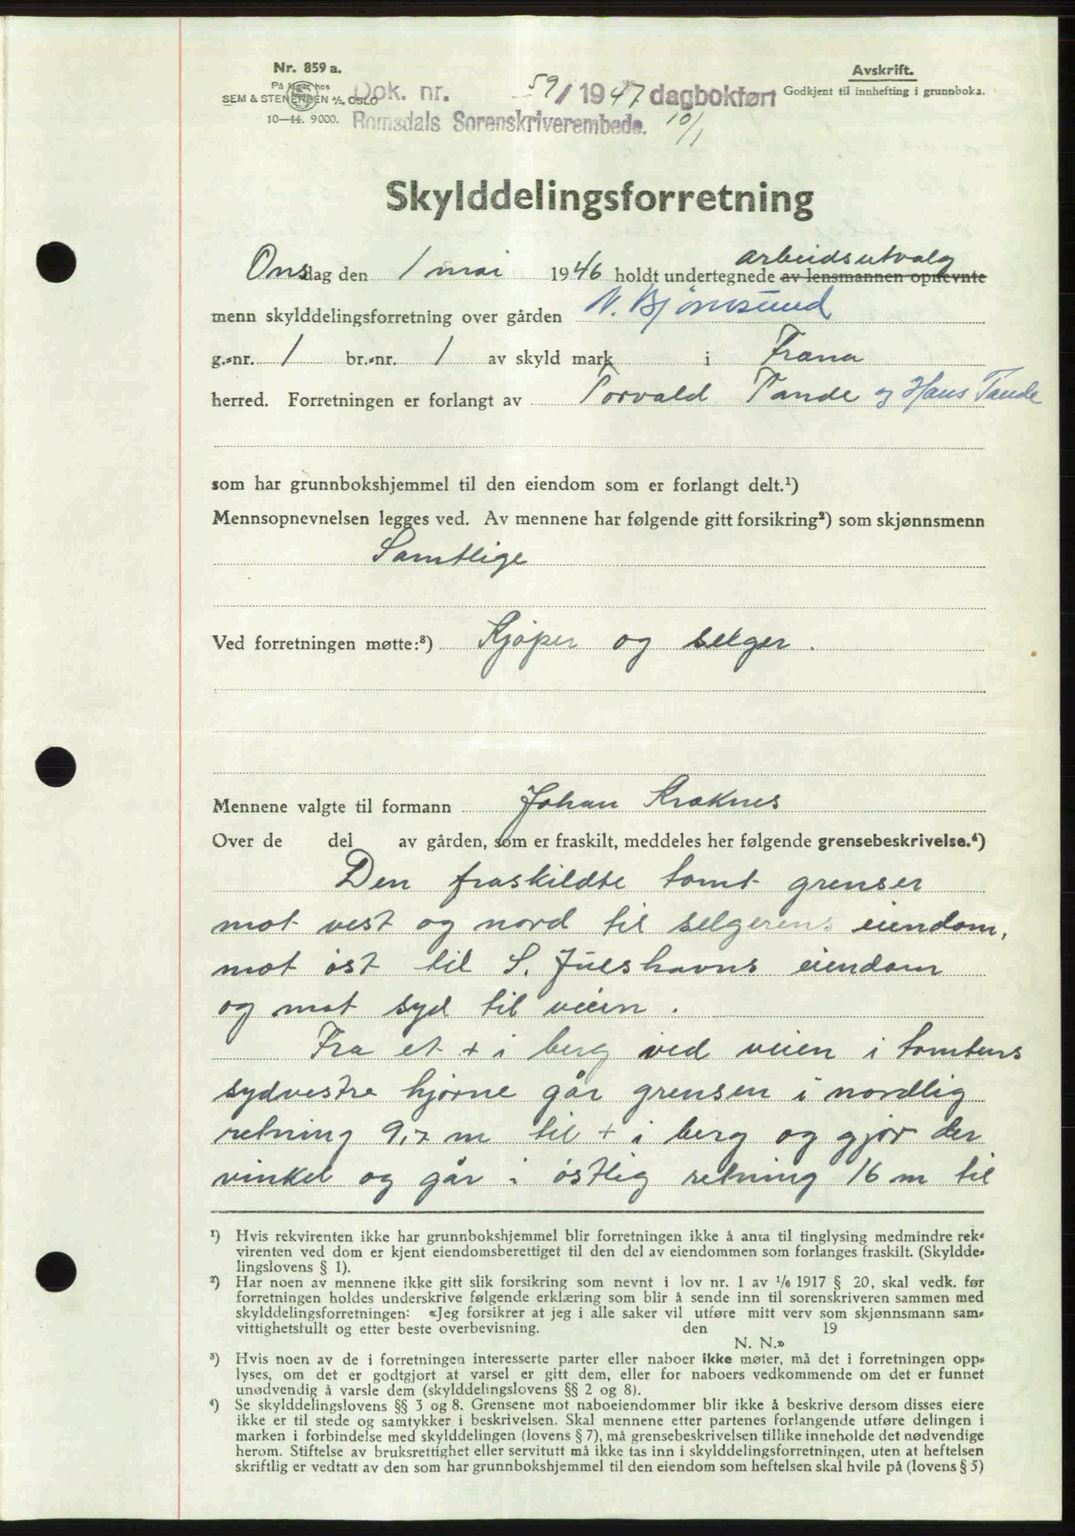 Nr. 859 a.
På lager hos
SEM & STENERSEN A/S, OSLO
10—44. 9000.
Dok. nr. 59/1947 dagbokført
Romsdals Sorenskriverembede. 10/1
Avskrift.
Godkjent til innhefting i grunnboka.
Skylddelingsforretning
arbeidsutvalg
Onsdag den 1 mai 1946 holdt undertegnede av lensmannen opnevnte
menn skylddelingsforretning over gården N. Bjørnsund
g.-nr. 1 br.-nr. 1 av skyld mark i Fræna
herred. Forretningen er forlangt av Torvald Tande og Hans Tande
som har grunnbokshjemmel til den eiendom som er forlangt delt.¹)
Mennsopnevnelsen legges ved. Av mennene har følgende gitt forsikring²) som skjønnsmenn
Samtlige
Ved forretningen møtte:³) Kjøper og selger.
Mennene valgte til formann Johan Kraknes
Over de del av gården, som er fraskilt, meddeles her følgende grensebeskrivelse.⁴)
Den fraskildte tomt grenser
mot vest og nord til selgerens eiendom,
mot øst til S. Julshavns eiendom
og mot syd til veien.
Fra et + i berg ved veien i tomtens
sydvestre hjørne går grensen i nordlig
retning 9,7 m til + i berg og gjør der
vinkel og går i østlig retning 16 m til
¹) Hvis rekvirenten ikke har grunnbokshjemmel blir forretningen ikke å anta til tinglysing medmindre rek-
virenten ved dom er kjent eiendomsberettiget til den del av eiendommen som forlanges fraskilt. (Skyldde-
lingslovens § 1).
²) Har noen av mennene ikke gitt slik forsikring som nevnt i lov nr. 1 av 1/6 1917 § 20, skal vedk. før
forretningen holdes underskrive følgende erklæring som blir å sende inn til sorenskriveren sammen med
skylddelingsforretningen: «Jeg forsikrer at jeg i alle saker vil utføre mitt verv som skjønnsmann sam-
vittighetsfullt og etter beste overbevisning. den 19
N. N.»
³) Hvis noen av de i forretningen interesserte parter eller naboer ikke møter, må det i forretningen opp-
lyses, om det er godtgjort at varsel er gitt dem, eller for naboers vedkommende om det er funnet
unødvendig å varsle dem (skylddelingslovens §§ 2 og 8).
⁴) Se skylddelingslovens §§ 3 og 8. Grensene mot naboeiendommer blir ikke å beskrive dersom disses eiere
ikke er til stede og samtykker i beskrivelsen. Skal mennene etter partenes forlangende utføre delingen i
marken i forbindelse med skylddelingen (lovens § 7), må grensebeskrivelsen tillike inneholde det nødvendige
herom. Stiftelse av bruksrettighet eller servitutt må ikke tas inn i skylddelingsforretningen, uten at heftelsen
skriftlig er vedtatt av den som har grunnbokshjemmel til den eiendom som heftelsen skal hvile på (lovens § 5)